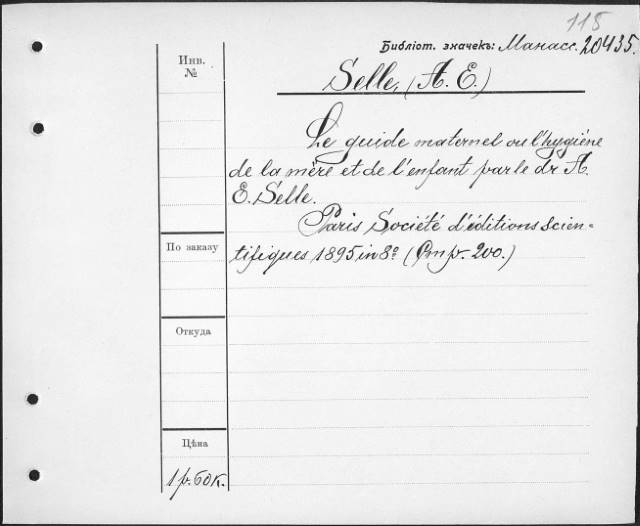 115
Библіот. значекъ: Манасс. 20435.
Инв.
№
Selle, (A. E.)
Le guide maternel ou l'hygiéne
de la mère et de l'enfant par le dr A.
E. Selle.
Paris Société d'éditions scien-
tifiques 1895 in 8º (Стр. 200.)
По заказу
Откуда
Цѣна
1 р. 60 к.